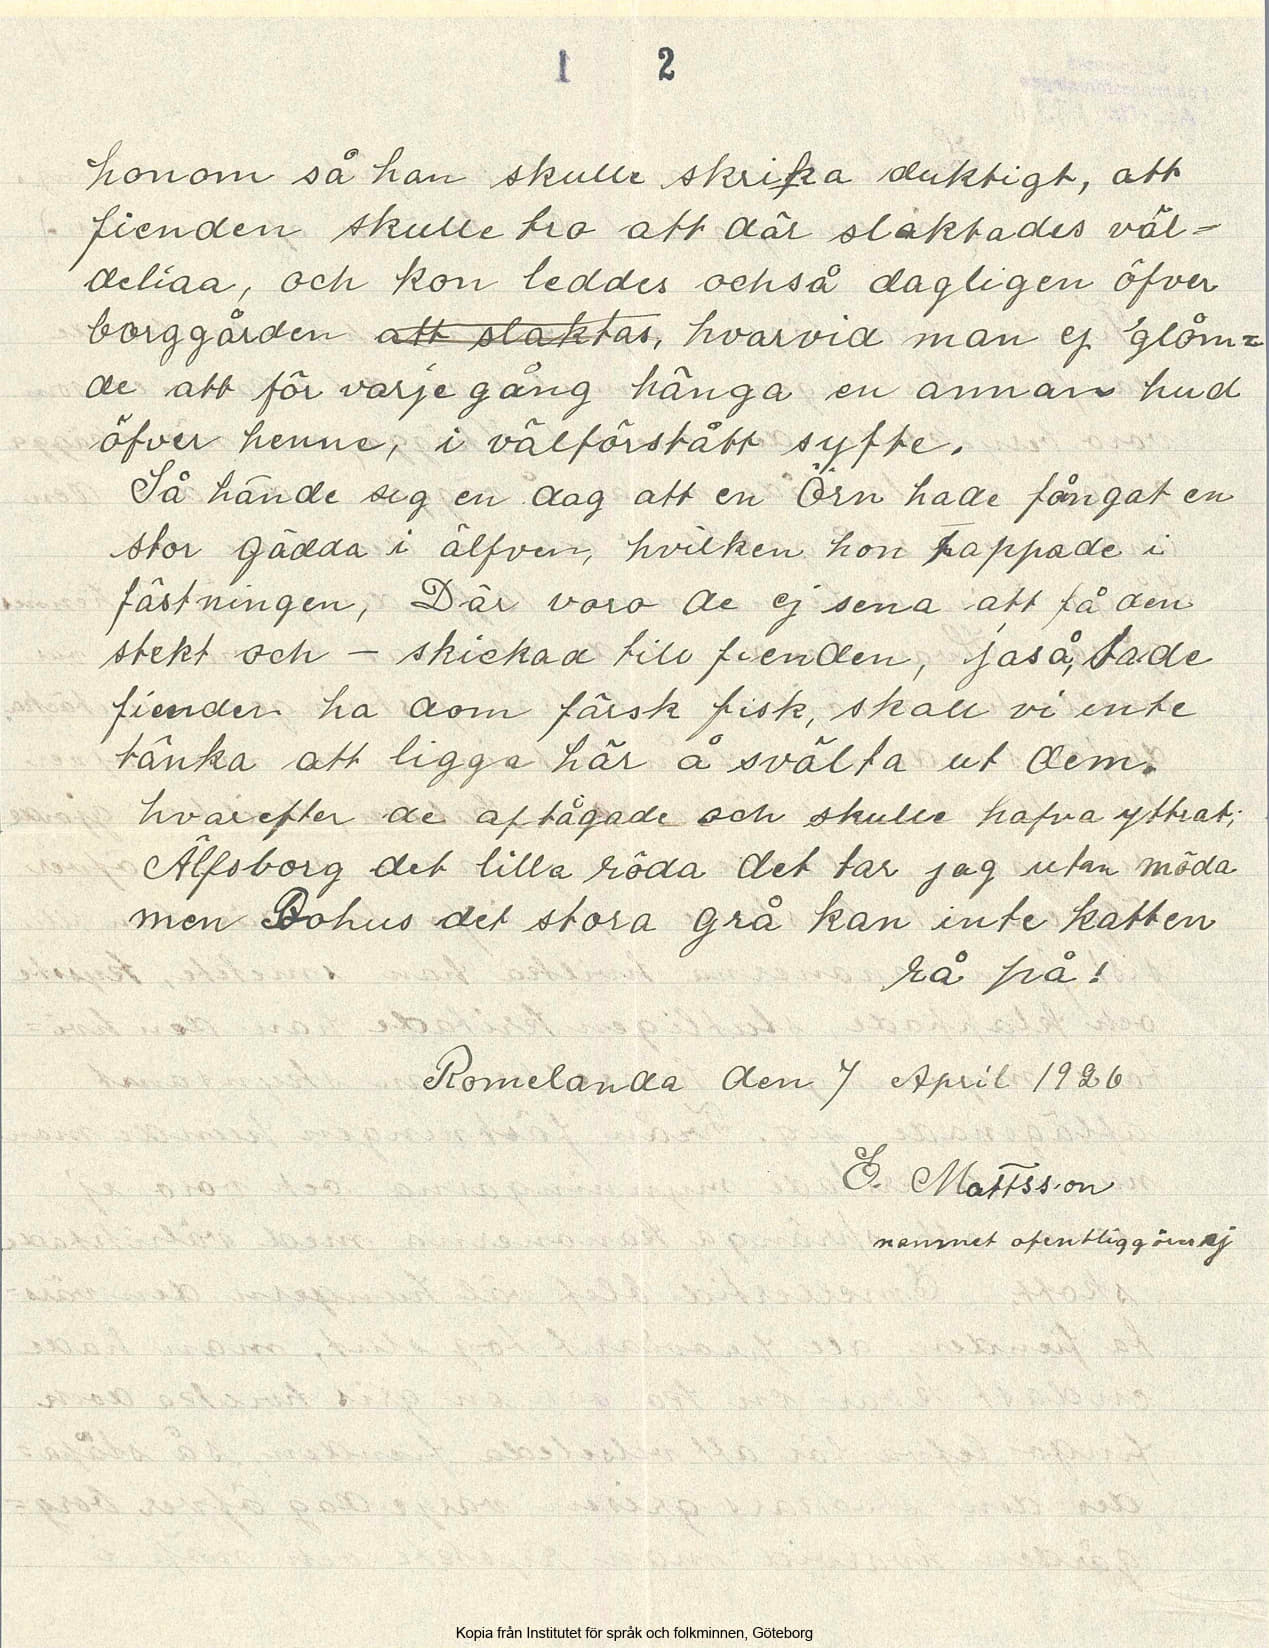 1 2
honom så han skulle skrika duktigt, att
fienden skulle tro att där slaktades väl=
deliga, och kon leddes också dagligen öfver
borggården att slaktas, hvarvid man ej glöm=
de att för varje gång hänga en annan hud
öfver henne, i välförstått syfte.
Så hände sig en dag att en Örn hade fångat en
stor gädda i älfven, hvilken hon tappade i
fästningen, Där voro de ej sena att få den
stekt och – skickad till fienden, jaså, sade
fienden ha dom färsk fisk, skall vi inte
tänka att ligga här å svälta ut dem.
hvarefter de aftågade och skulle hafva yttrat;
Älfsborg det lilla röda det tar jag utan möda
men Bohus det stora grå kan inte katten
rå på!
Romelanda den 7 April 1926
E. Mattsson
namnet ofentliggöres ej
Kopia från Institutet för språk och folkminnen, Göteborg